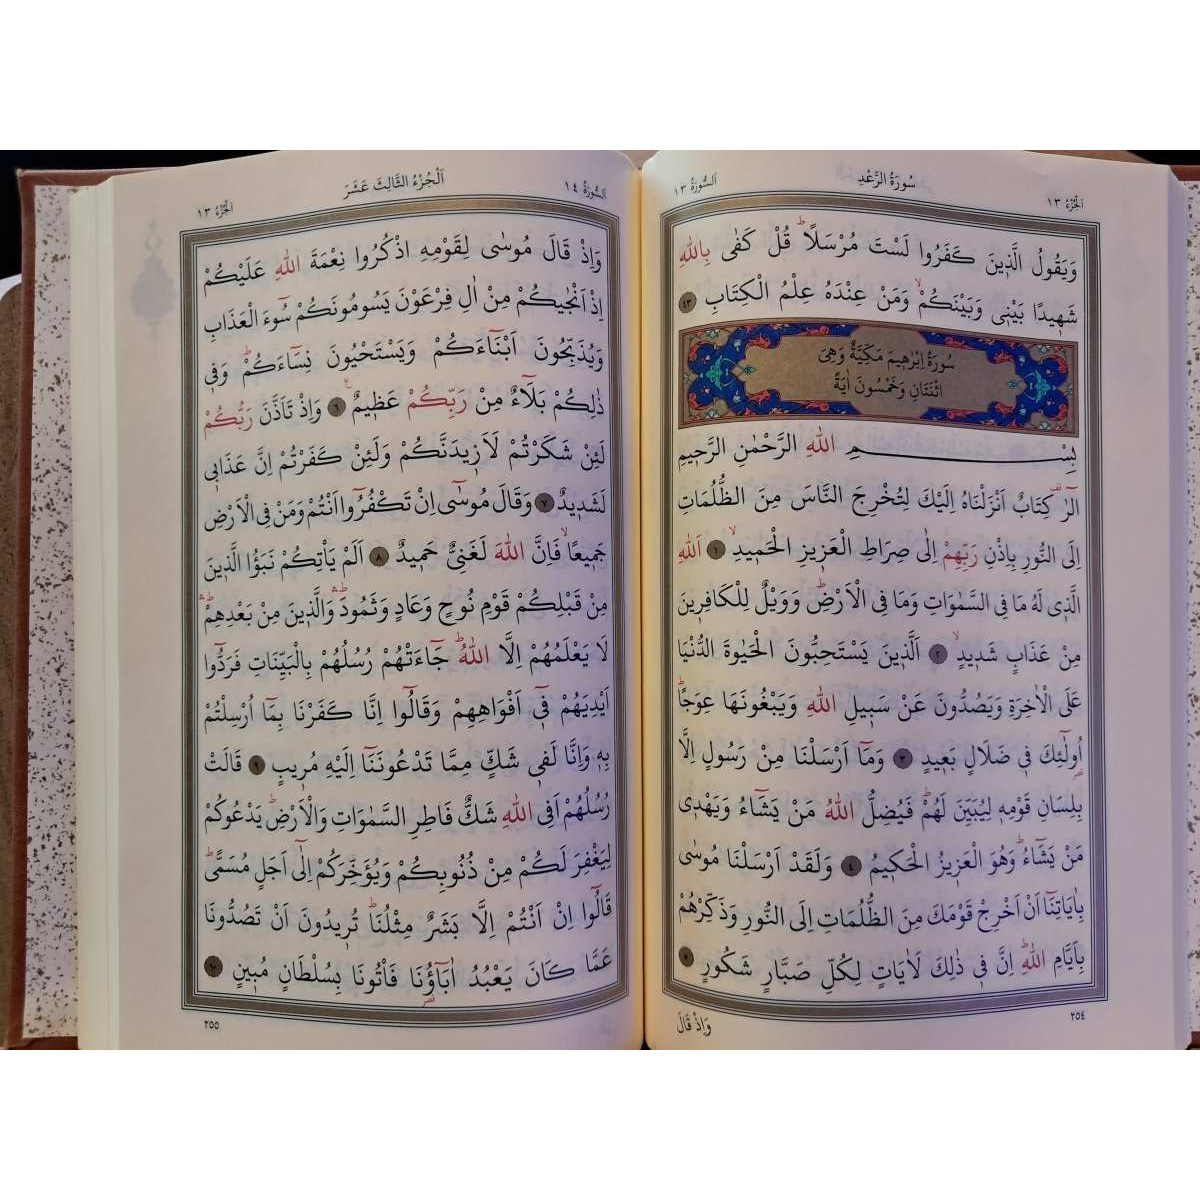 اَلْجُزْءُ ١٣
سُورَةُ الرَّعْدِ
اَلسُّورَةُ ١٣
وَيَقُولُ الَّذ۪ينَ كَفَرُوا لَسْتَ مُرْسَلًاۜ قُلْ كَفٰى بِاللّٰهِ
شَه۪يدًا بَيْن۪ى وَبَيْنَكُمْۙ وَمَنْ عِنْدَهُ عِلْمُ الْكِتَابِ ٤٣
سُورَةُ اِبْرٰه۪يمَ مَكِّيَّةٌ وَهِىَ
اثْنَتَانِ وَخَمْسُونَ اٰيَةً
بِسْــــــــمِ اللّٰهِ الرَّحْمٰنِ الرَّح۪يمِ
الٓرٰ۠ كِتَابٌ اَنْزَلْنَاهُ اِلَيْكَ لِتُخْرِجَ النَّاسَ مِنَ الظُّلُمَاتِ
اِلَى النُّورِ بِاِذْنِ رَبِّهِمْ اِلٰى صِرَاطِ الْعَز۪يزِ الْحَم۪يدِۙ ١ اَللّٰهِ
الَّذ۪ى لَهُ مَا فِى السَّمٰوَاتِ وَمَا فِى الْاَرْضِۜ وَوَيْلٌ لِلْكَافِر۪ينَ
مِنْ عَذَابٍ شَد۪يدٍۙ ٢ اَلَّذ۪ينَ يَسْتَحِبُّونَ الْحَيٰوةَ الدُّنْيَا
عَلَى الْاٰخِرَةِ وَيَصُدُّونَ عَنْ سَب۪يلِ اللّٰهِ وَيَبْغُونَهَا عِوَجًاۜ
اُو۬لٰٓئِكَ ف۪ى ضَلَالٍ بَع۪يدٍ ٣ وَمَٓا اَرْسَلْنَا مِنْ رَسُولٍ اِلَّا
بِلِسَانِ قَوْمِه۪ لِيُبَيِّنَ لَهُمْۜ فَيُضِلُّ اللّٰهُ مَنْ يَشَٓاءُ وَيَهْد۪ى
مَنْ يَشَٓاءُۜ وَهُوَ الْعَز۪يزُ الْحَك۪يمُ ٤ وَلَقَدْ اَرْسَلْنَا مُوسٰى
بِاٰيَاتِنَٓا اَنْ اَخْرِجْ قَوْمَكَ مِنَ الظُّلُمَاتِ اِلَى النُّورِ وَذَكِّرْهُمْ
بِاَيَّامِ اللّٰهِۜ اِنَّ ف۪ى ذٰلِكَ لَاٰيَاتٍ لِكُلِّ صَبَّارٍ شَكُورٍ ٥
٢٥٤
وَاِذْ قَالَ
اَلسُّورَةُ ١٤
اَلْجُزْءُ الثَّالِثَ عَشَرَ
اَلْجُزْءُ ١٣
وَاِذْ قَالَ مُوسٰى لِقَوْمِهِ اذْكُرُوا نِعْمَةَ اللّٰهِ عَلَيْكُمْ
اِذْ اَنْجٰيكُمْ مِنْ اٰلِ فِرْعَوْنَ يَسُومُونَكُمْ سُٓوءَ الْعَذَابِ
وَيُذَبِّحُونَ اَبْنَٓاءَكُمْ وَيَسْتَحْيُونَ نِسَٓاءَكُمْۜ وَف۪ى
ذٰلِكُمْ بَلَٓاءٌ مِنْ رَبِّكُمْ عَظ۪يمٌ۟ ٦ وَاِذْ تَاَذَّنَ رَبُّكُمْ
لَئِنْ شَكَرْتُمْ لَاَز۪يدَنَّكُمْ وَلَئِنْ كَفَرْتُمْ اِنَّ عَذَاب۪ى
لَشَد۪يدٌ ٧ وَقَالَ مُوسٰٓى اِنْ تَكْفُرُٓوا اَنْتُمْ وَمَنْ فِى الْاَرْضِ
جَم۪يعًاۙ فَاِنَّ اللّٰهَ لَغَنِىٌّ حَم۪يدٌ ٨ اَلَمْ يَأْتِكُمْ نَبَؤُا الَّذ۪ينَ
مِنْ قَبْلِكُمْ قَوْمِ نُوحٍ وَعَادٍ وَثَمُودَۜۛ وَالَّذ۪ينَ مِنْ بَعْدِهِمْۜۛ
لَا يَعْلَمُهُمْ اِلَّا اللّٰهُۜ جَٓاءَتْهُمْ رُسُلُهُمْ بِالْبَيِّنَاتِ فَرَدُّٓوا
اَيْدِيَهُمْ ف۪ٓى اَفْوَاهِهِمْ وَقَالُٓوا اِنَّا كَفَرْنَا بِمَٓا اُرْسِلْتُمْ
بِه۪ وَاِنَّا لَف۪ى شَكٍّ مِمَّا تَدْعُونَنَٓا اِلَيْهِ مُر۪يبٍ ٩ قَالَتْ
رُسُلُهُمْ اَفِى اللّٰهِ شَكٌّ فَاطِرِ السَّمٰوَاتِ وَالْاَرْضِۜ يَدْعُوكُمْ
لِيَغْفِرَ لَكُمْ مِنْ ذُنُوبِكُمْ وَيُؤَخِّرَكُمْ اِلٰٓى اَجَلٍ مُسَمًّىۜ
قَالُٓوا اِنْ اَنْتُمْ اِلَّا بَشَرٌ مِثْلُنَاۜ تُر۪يدُونَ اَنْ تَصُدُّونَا
عَمَّا كَانَ يَعْبُدُ اٰبَٓاؤُ۬نَا فَأْتُونَا بِسُلْطَانٍ مُب۪ينٍ ١٠
٢٥٥